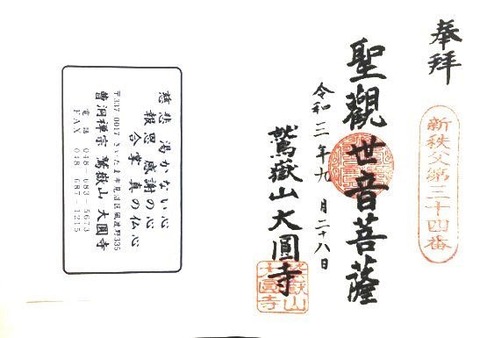 奉拝
新秩父第三十四番
聖觀世音菩薩
令和三年九月二十八日
鷲嶽山大圓寺
鷲嶽山
大圓寺
慈悲 渇かない心
報恩 感謝の心
合掌 真の仏心
〒337-0017 さいたま市見沼区風渡野335
曹洞禅宗 鷲嶽山 大圓寺
電話 048-683-5673
FAX 048-687-1215